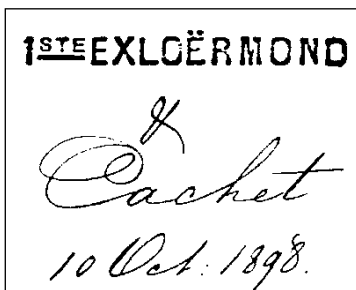 1STE EXLOËRMOND
Cachet
10 Oct: 1898.